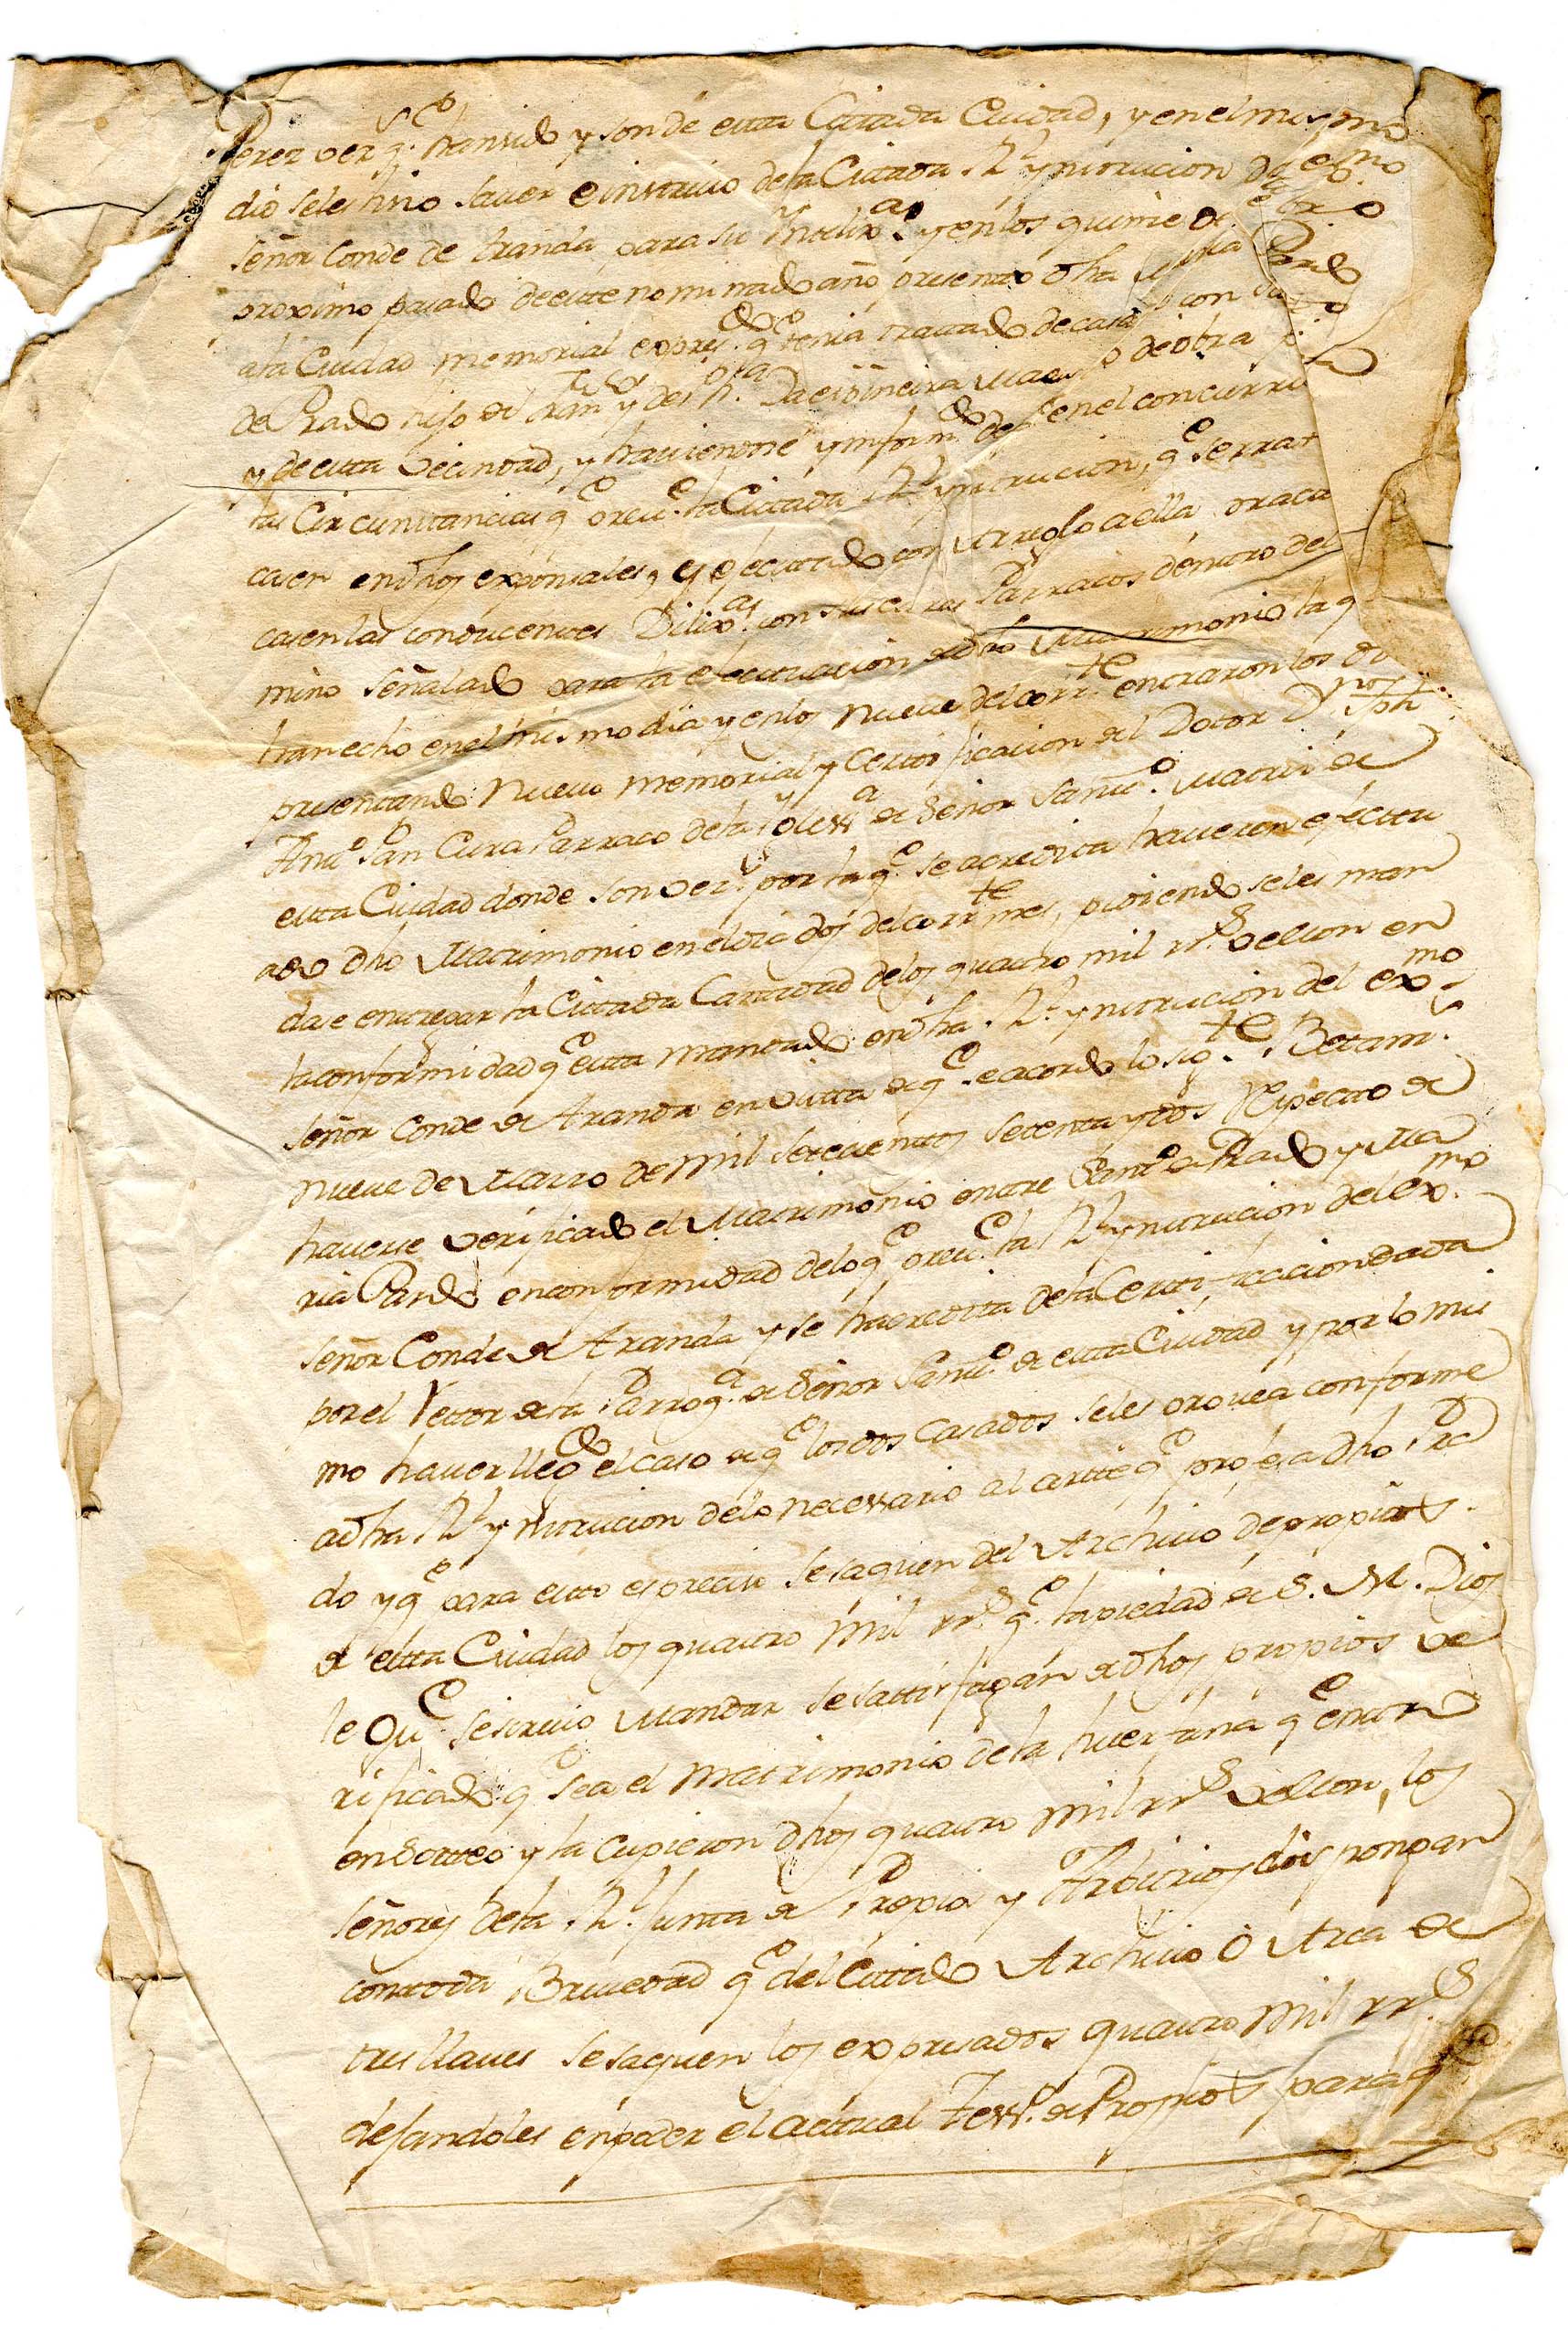 Perez vez.s q.e han sido y son de esta Citada Ciudad, y en el mismo
dio seles hizo saver e instruio dela Citada R.l ynstrucion del exmo
señor Conde de Aranda para su yntelix.a y en los quinze de
proximo pasado de este nominado año, presentó dha Pardo
ala Ciudad memorial expres.do q.e tenia tratado de casar con
de Prado hijo de Fran.co y de Maestro de obra p.
y de esta vecindad, y haviendose ynform.do de q.e en el concurri
las Circunstancias q.e prev.e la Citada R.l ynstrucion, q.e se rrat
casen en dhos exponsales, y efectuado con arreglo a ella praca
casen las conducentes Dilix.as con sus Parracos dentro del
mino señalado para la efectuacion de dho Matrimonio la q
han echo en el mismo dia y en los nueve del corr.te entraron los d
presentando nuevo memorial y Certificacion del Dotor D.n Jph
Ant.o Pan Cura Parraco dela yglesia de Señor Sant.o Matriz de
esta Ciudad donde son vez.s por la q.e se acredita haverse efectu
ado dho Matrimonio en el dia dos del corr.te mes, pidiendo seles man
dase entregar la Citada Cantidad delos quatro mil rr.s vellon en
la conformidad q.e esta mandado en dha R.l ynstrucion del exmo
señor Conde de Aranda en vista de q.e se acordo lo sig.te Betam.s
nueve de Marzo de mil setecientos setenta y dos Respecto de
haverse verificado el Matrimonio entre Sant.o de Prado y Ma
ria Pardo en conformidad delo q.e prev.e la R.l ynstrucion del Exmo
señor Conde de Aranda y se hacredita dela Certificacion dada
por el Rector dela Parroq.a de Señor Sant.o de esta Ciudad y por lo mis
mo haver lleg.do el caso de q.e los dos Casados seles provea conforme
adha R.l ynstrucion delo necessario al arte q.e profesa dho Pra
do y q.e para esto es preciso se saquen del Archivo de propios
de esta Ciudad los quatro mil rr.s q.e la piedad de S. M. Dios
le Gu.e se sirvio mandar se sattisfagan de dhos propios ve
rificado q.e sea el matrimonio dela huerfana q.e entro
en Sorteo y la cupieron dhos quatro mil rr.s vellon, los
señores dela R.l Junta de Propios y Arbitrios dispongan
con toda Brevedad q.e del Citado Archivo ó Arca de
tres llaves se saquen los expresados quatro mil rr.s
dejandoles en poder el actual Tess.o de Propios para q.e